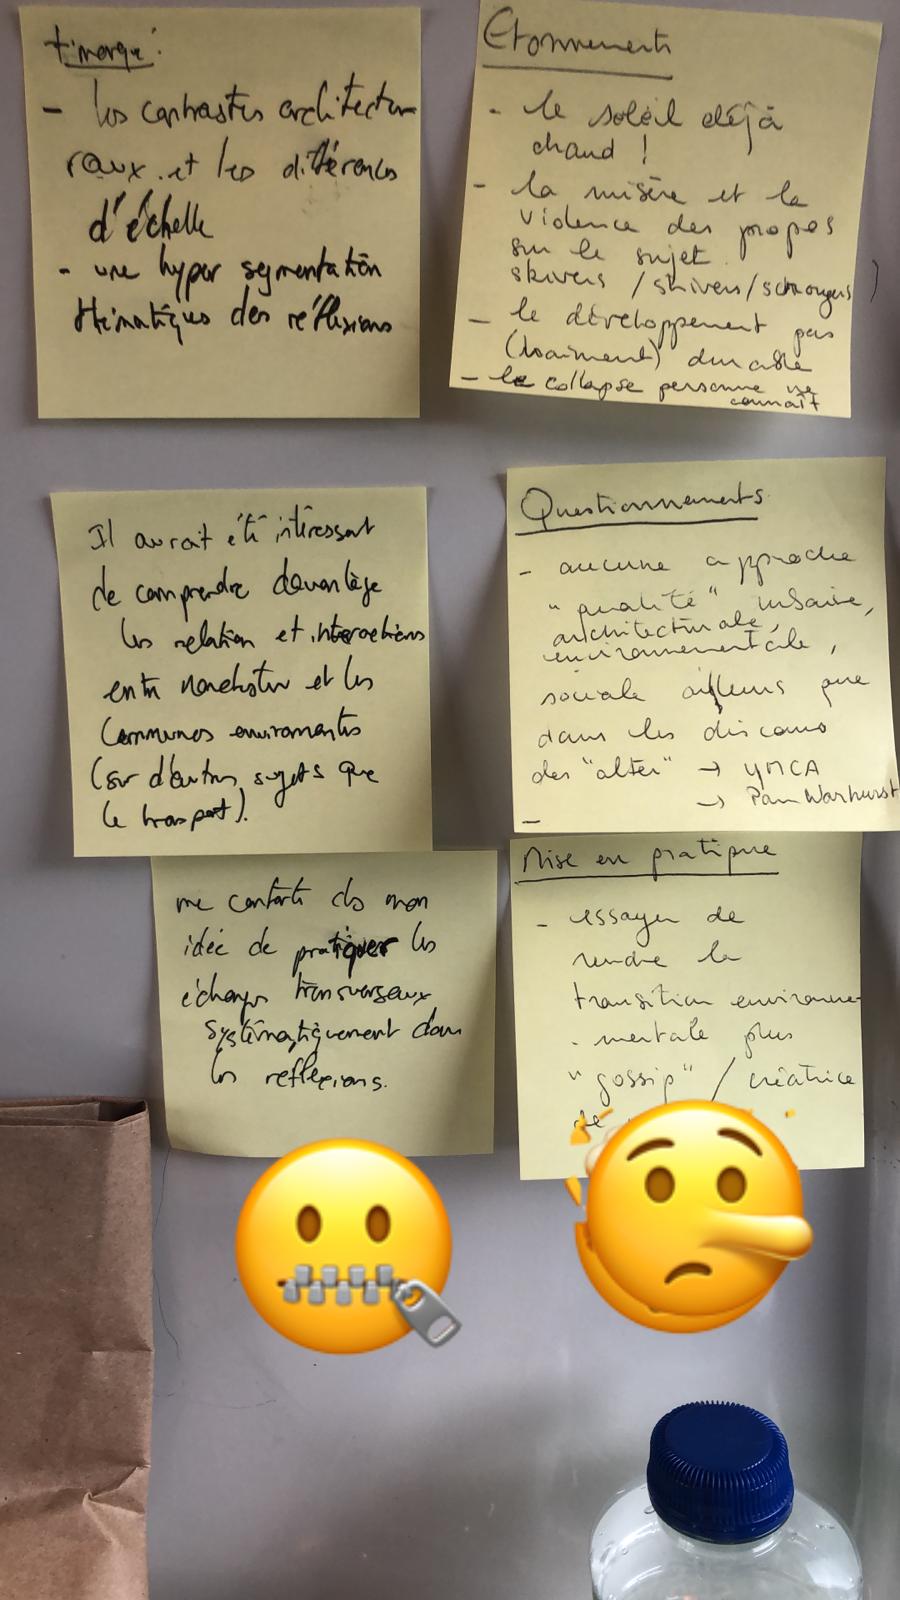 t'marqué :
- les contrastes architectu-
raux et les différences
d'échelle
- une hyper segmentation
thématiques des réflexions
Etonnements
- le soleil déjà
chaud !
- la misère et la
violence des propos
sur le sujet
skivers / strivers / scroungers
- le développement pas
(vraiment) durable
- le collapse personne ne
connaît
Il aurait été intéressant
de comprendre davantage
les relation et interactions
entre Manchester et les
Communes environnantes
(sur d'autres sujets que
le transport).
Questionnements
- aucune approche
"qualité" urbaine,
architecturale,
environnementale,
sociale ailleurs que
dans les discours
des "alter" → YMCA
→ Pam Warhurst
-
me conforte ds mon
idée de pratiquer les
échanges transversaux
systématiquement dans
les réflexions.
Mise en pratique
- essayer de
rendre la
transition environne-
-mentale plus
"gossip" / créatrice
de